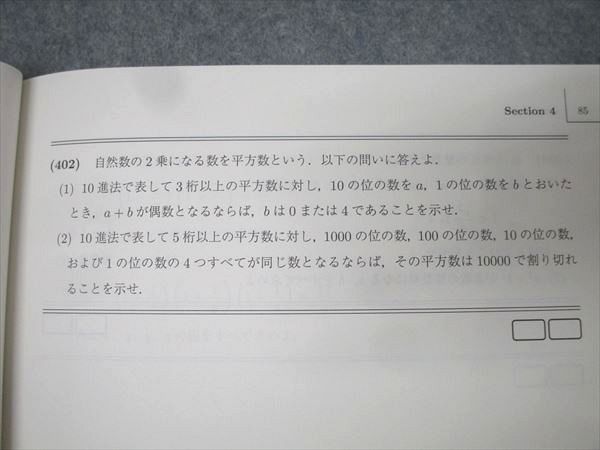 Section 4 85
(402) 自然数の2乗になる数を平方数という．以下の問いに答えよ．
(1) 10進法で表して3桁以上の平方数に対し，10の位の数をa，1の位の数をbとおいた
とき，a＋bが偶数となるならば，bは0または4であることを示せ．
(2) 10進法で表して5桁以上の平方数に対し，1000の位の数，100の位の数，10の位の数，
および1の位の数の4つすべてが同じ数となるならば，その平方数は10000で割り切れ
ることを示せ．